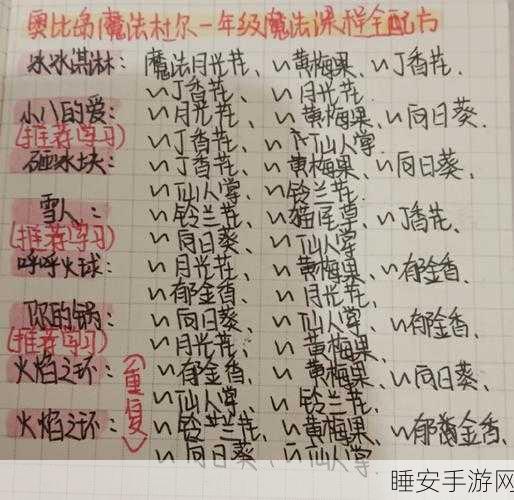 奥比岛魔法杜尔一年级魔法课程全配方
冰冰淇淋：魔法月光花、〃黄梅果、〃丁香花、
〃丁香花、〃月光花
小八的爱：〃月光花、〃黄梅果、〃向日葵、
(推荐学习) 〃丁香花、〃仙人掌
砸冰块：〃丁香花、〃黄梅果、〃向日葵、
〃仙人掌、〃铃兰花
雪人：〃铃兰花、〃猫尾草、〃丁香花、
(推荐学习) 〃向日葵、〃仙人掌
呼呼火球：〃月光花、〃黄梅果、〃郁金香、
〃郁金香、〃月光花
你的锅：〃向日葵、〃仙人掌、〃郁金香、
(推荐学习) 〃月光花、〃黄梅果
火焰之环：(重复) 〃郁金香、〃黄梅果、〃向日葵、
〃仙人掌、〃铃兰花
火焰之环：〃铃兰花、〃黄梅果、〃郁金香、
〃向日葵、〃仙人掌
睡安手游网